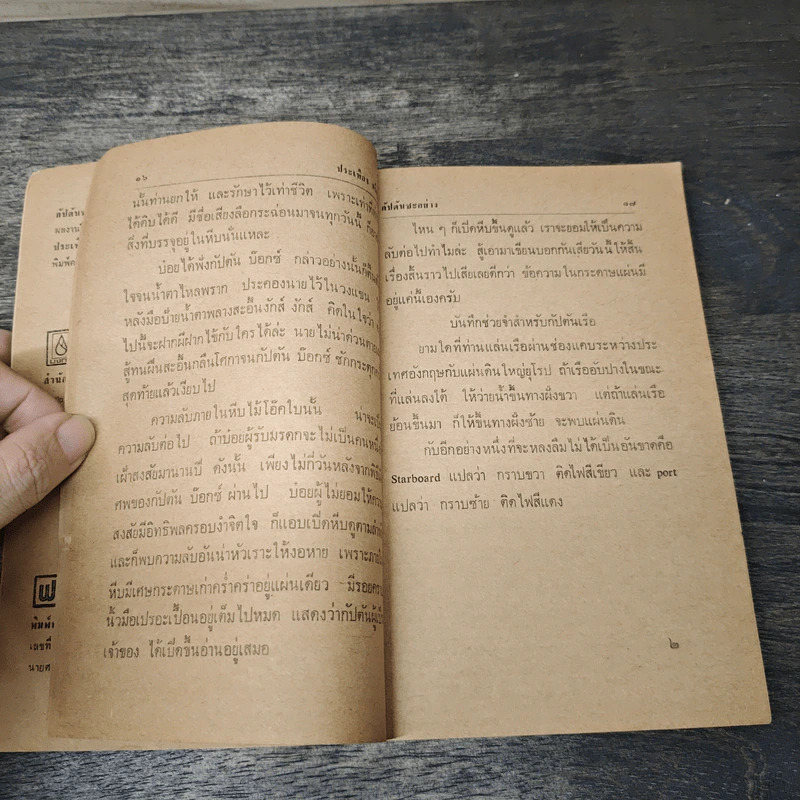 กัปตัน
ผลงาน
ประเภ
พิมพ์ค
สำนัก
พิมพ์
เลขที่
นายศ
๑๖ ประเพียร
นั้นท่านยกให้ และรักษาไว้เท่าชีวิต เพราะเท่าที่
ได้ดิบได้ดี มีชื่อเสียงลือกระฉ่อนมาจนทุกวันนี้
สิ่งที่บรรจุอยู่ในหีบนั่นแหละ
บ๋อยได้ฟังกัปตัน บ๊อกซ์ กล่าวอย่างนั้นก็
ใจจนน้ำตาไหลพราก ประคองนายไว้ในวงแขน
หลังมือป้ายน้ำตาพลางสะอื้นงักส์ งักส์ คิดในใจว่า
ไปนี้จะฝากผีฝากไข้กับใครได้ล่ะ นายไม่น่าด่วนตาย
สู้ทนฝืนสะอื้นกลืนโศกาจนกัปตัน บ๊อกซ์ ชักกระตุก
สุดท้ายแล้วเงียบไป
ความลับภายในหีบไม้โอ๊คใบนั้น น่าจะ
ความลับต่อไป ถ้าบ๋อยผู้รับมรดกจะไม่เป็นคน
เฝ้าสงสัยมานานปี ดังนั้น เพียงไม่กี่วันหลังจากพิธี
ศพของกัปตัน บ๊อกซ์ ผ่านไป บ๋อยผู้ไม่ยอมให้ความ
สงสัยมีอิทธิพลครอบงำจิตใจ ก็แอบเปิดหีบดูตาม
และก็พบความลับอันน่าหัวเราะให้งอหาย เพราะภาย
หีบมีเศษกระดาษเก่าคร่ำคร่าอยู่แผ่นเดียว มีรอยคราบ
นิ้วมือเปรอะเปื้อนอยู่เต็มไปหมด แสดงว่ากัปตันผู้
เจ้าของ ได้เปิดขึ้นอ่านอยู่เสมอ
กัปตันซะอย่าง ๑๗
ไหน ๆ ก็เปิดหีบขึ้นดูแล้ว เราจะยอมให้เป็นความ
ลับต่อไปทำไมล่ะ สู้เอามาเขียนบอกกันเสียวันนี้ให้สิ้น
เรื่องสิ้นราวไปเสียเลยดีกว่า ข้อความในกระดาษแผ่นมี
อยู่แค่นี้เองครับ
บันทึกช่วยจำสำหรับกัปตันเรือ
ยามใดที่ท่านแล่นเรือผ่านช่องแคบระหว่างประ
เทศอังกฤษกับแผ่นดินใหญ่ยุโรป ถ้าเรืออับปางในขณะ
ที่แล่นลงใต้ ให้ว่ายน้ำขึ้นทางฝั่งขวา แต่ถ้าแล่นเรือ
ย้อนขึ้นมา ก็ให้ขึ้นทางฝั่งซ้าย จะพบแผ่นดิน
กับอีกอย่างหนึ่งที่จะหลงลืมไม่ได้เป็นอันขาดคือ
Starboard แปลว่า กราบขวา ติดไฟสีเขียว และ port
แปลว่า กราบซ้าย ติดไฟสีแดง
๒